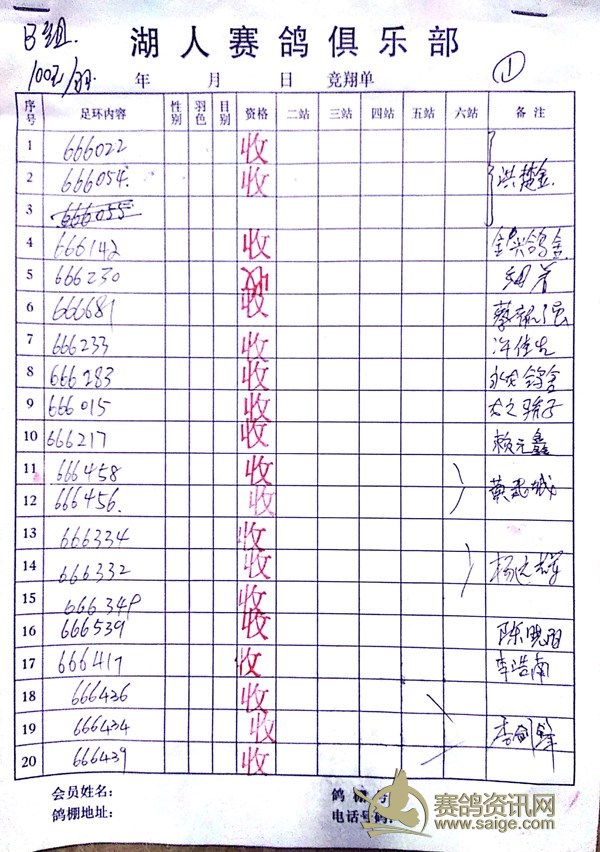 B组
湖人赛鸽俱乐部
100元/羽 年 月 日 竞翔单 ①
序号 足环内容 性别 羽色 目别 资格 二站 三站 四站 五站 六站 备注
1 666022 收
2 666054. 收 洪楚金.
3 666055
4 666142 收
5 666230
6 666681 收
7 666233 收
8 666283 收
9 666015 收
10 666217 收 赖元鑫
11 666458 收
12 666456. 收
13 666334 收
14 666332 收
15 666349 收
16 666539 收 陈晓阳
17 666417 收 李浩南
18 666436 收
19 666434 收 李剑锋
20 666439 收
会员姓名: 鸽棚号
鸽棚地址: 电话号码:
赛鸽资讯网
www.saige.com